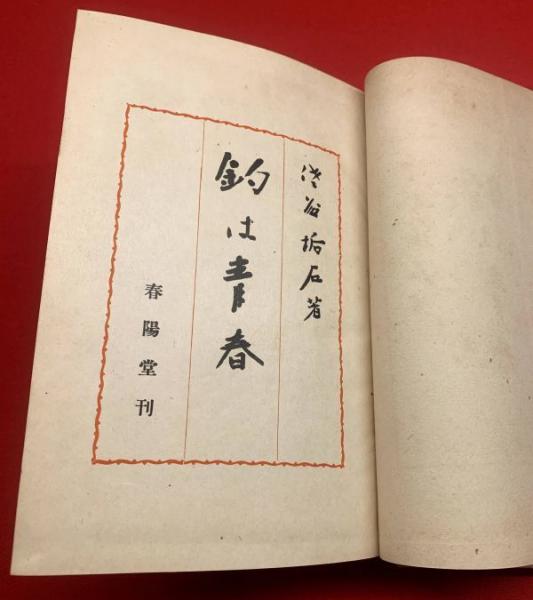 佐藤垢石著
釣は青春
春陽堂刊